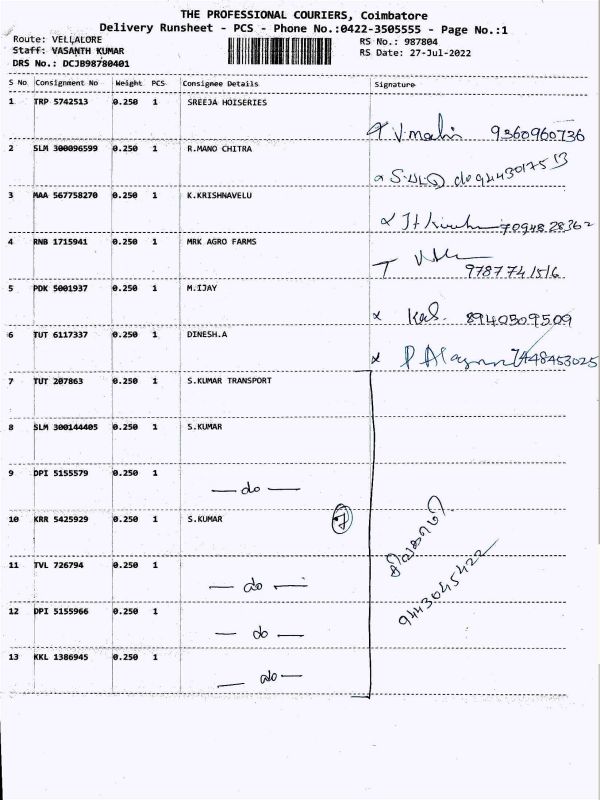 THE PROFESSIONAL COURIERS, Coimbatore
Delivery Runsheet - PCS - Phone No.:0422-3505555 - Page No.:1
Route: VELLALORE RS No.: 987804
Staff: VASANTH KUMAR RS Date: 27-Jul-2022
DRS No.: DCJB98780401
S No. Consignment No Weight PCS Consignee Details Signature
1 TRP 5742513 0.250 1 SREEJA HOISERIES
9360960736
2 SLM 300096599 0.250 1 R.MANO CHITRA
3 MAA 567758270 0.250 1 K.KRISHNAVELU
7094828362
4 RNB 1715941 0.250 1 MRK AGRO FARMS
9787741516
5 PDK 5001937 0.250 1 M.IJAY
8940509509
6 TUT 6117337 0.250 1 DINESH.A
7448453025
7 TUT 207863 0.250 1 S.KUMAR TRANSPORT
8 SLM 300144405 0.250 1 S.KUMAR
9 DPI 5155579 0.250 1
— do —
10 KRR 5425929 0.250 1 S.KUMAR 7
11 TVL 726794 0.250 1
— do —
9443045422
12 DPI 5155966 0.250 1
— do —
13 KKL 1386945 0.250 1
— do —